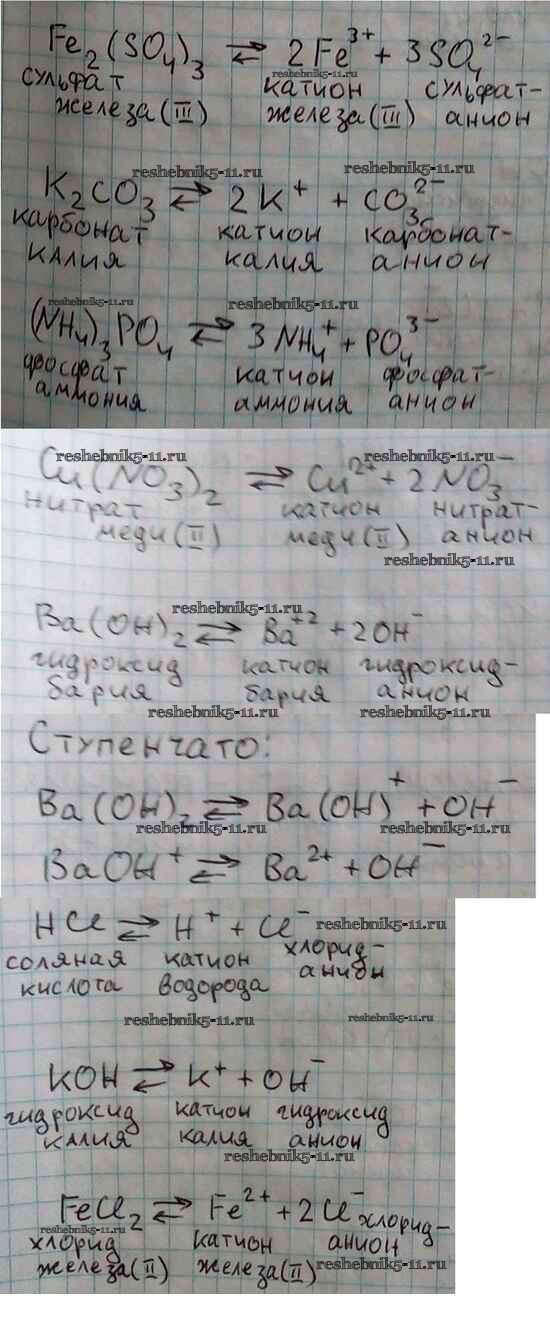 Fe₂(SO₄)₃ ⇄ 2Fe³⁺ + 3SO₄²⁻
сульфат катион сульфат-
железа(III) железа(III) анион
reshebnik5-11.ru reshebnik5-11.ru
K₂CO₃ ⇄ 2K⁺ + CO₃²⁻
карбонат катион карбонат-
калия калия анион
reshebnik5-11.ru reshebnik5-11.ru
(NH₄)₃PO₄ ⇄ 3NH₄⁺ + PO₄³⁻
фосфат катион фосфат-
аммония аммония анион
reshebnik5-11.ru reshebnik5-11.ru
Cu(NO₃)₂ ⇄ Cu²⁺ + 2NO₃⁻
нитрат катион нитрат-
меди(II) меди(II) анион
reshebnik5-11.ru
reshebnik5-11.ru
Ba(OH)₂ ⇄ Ba⁺² + 2OH⁻
гидроксид катион гидроксид-
бария бария анион
reshebnik5-11.ru reshebnik5-11.ru
Ступенчато:
Ba(OH)₂ ⇄ Ba(OH)⁺ + OH⁻
reshebnik5-11.ru reshebnik5-11.ru
BaOH⁺ ⇄ Ba²⁺ + OH⁻
HCl ⇄ H⁺ + Cl⁻ reshebnik5-11.ru
соляная катион хлорид-
кислота водорода анион
reshebnik5-11.ru reshebnik5-11.ru
KOH ⇄ K⁺ + OH⁻
гидроксид катион гидроксид
калия калия анион
reshebnik5-11.ru
FeCl₂ ⇄ Fe²⁺ + 2Cl⁻ хлорид-
reshebnik5-11.ru
хлорид катион анион
железа(II) железа(II)
reshebnik5-11.ru